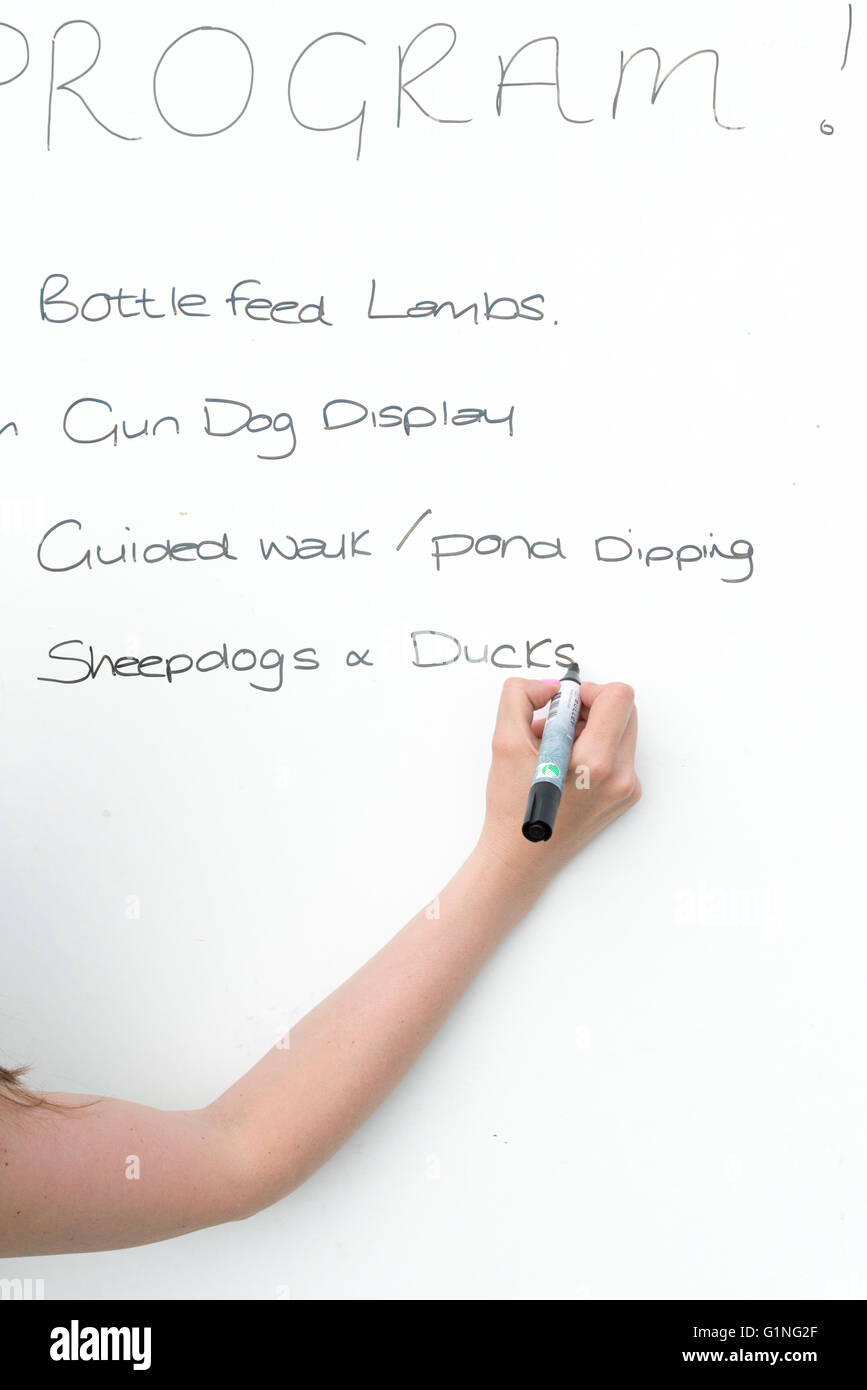 PROGRAM!
Bottle feed Lambs.
Gun Dog Display
Guided walk / pond Dipping
Sheepdogs & Ducks
alamy
Image ID: G1NG2F
www.alamy.com